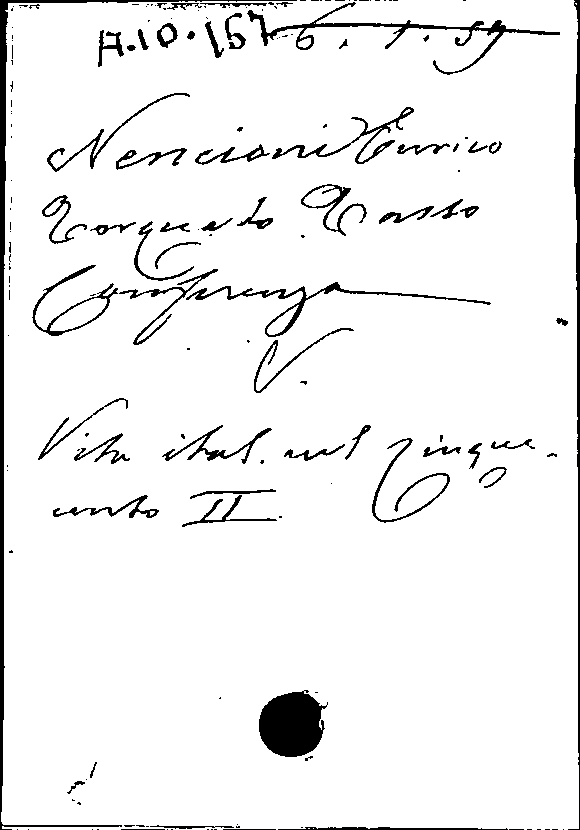 A.10.167 6.1.59
Nencioni Enrico
Torquato Tasso
Conferenza
V.
Vita ital. nel Cinque-
cento II.